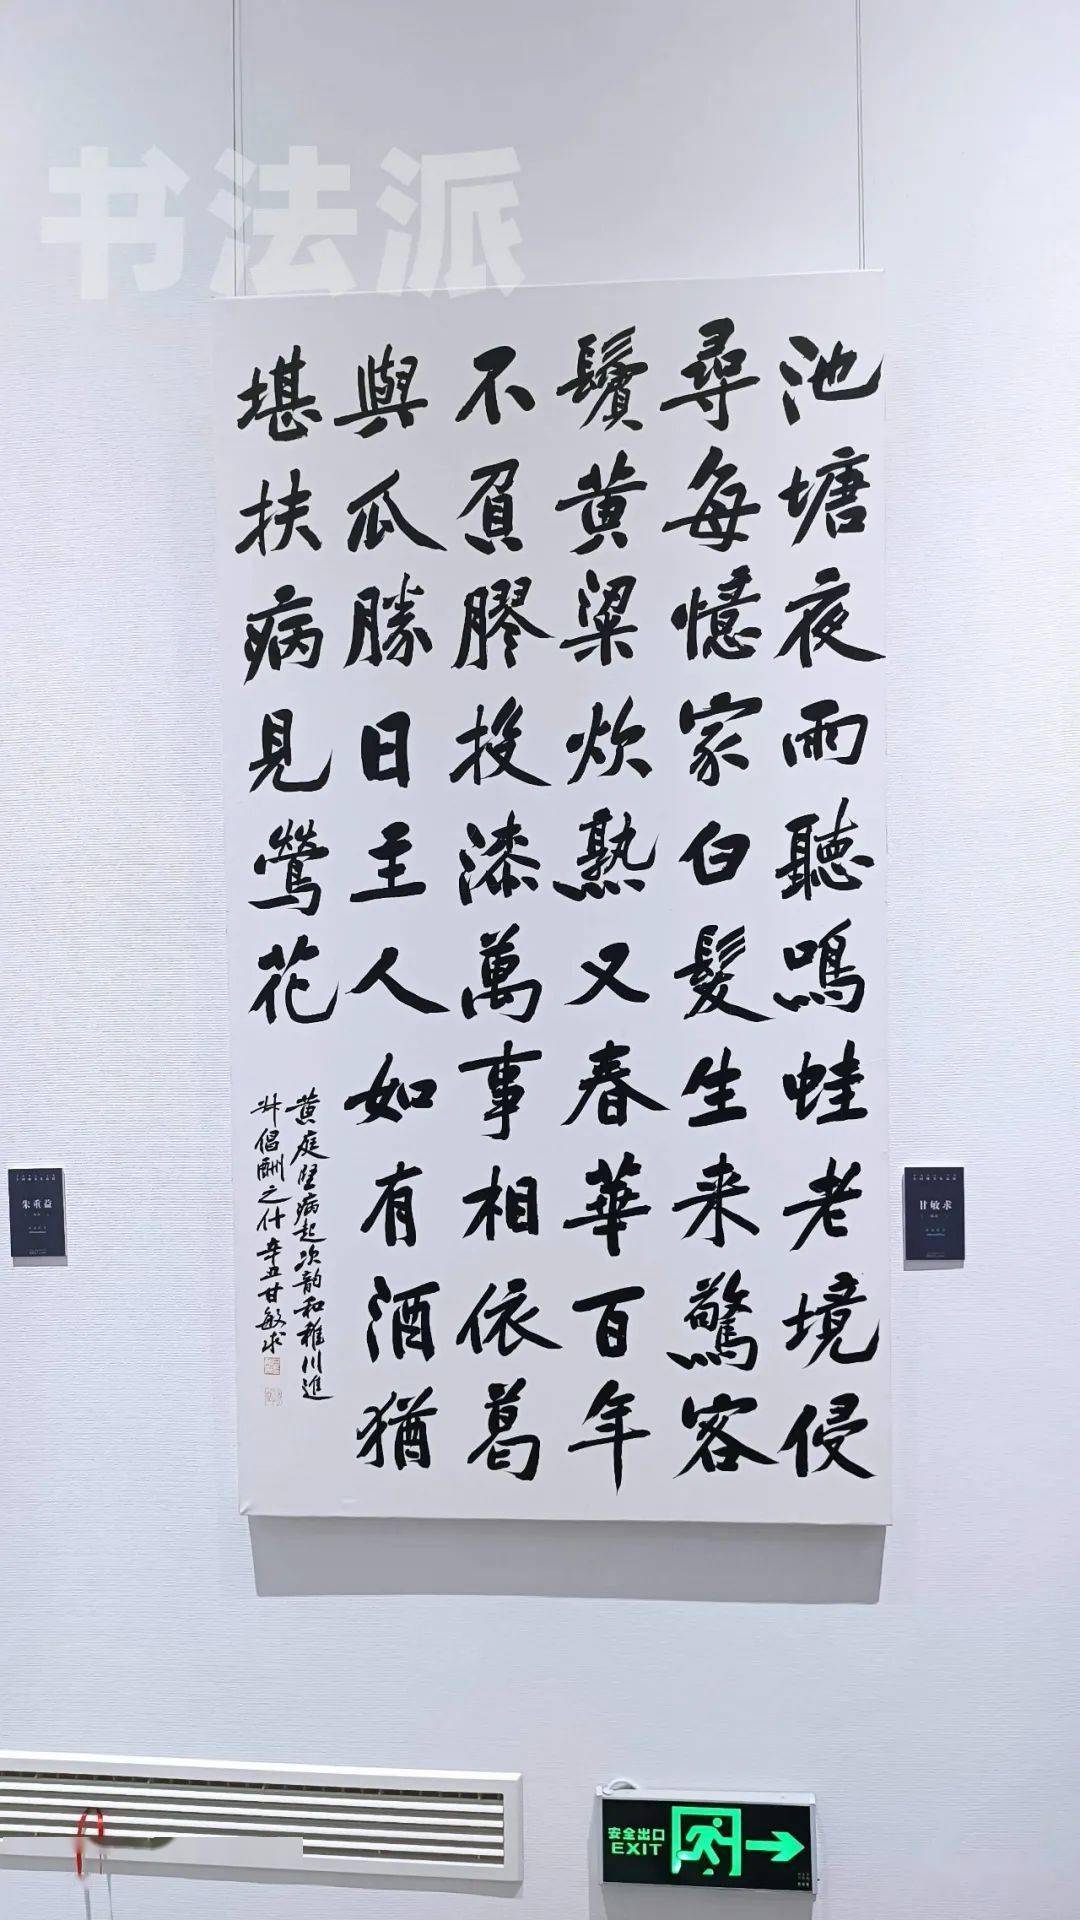 书法派
池塘夜雨聽鳴蛙老境侵
尋每憶家白髮生来驚客
鬢黄粱炊熟又春華百年
不負膠投漆萬事相依葛
與瓜勝日主人如有酒猶
堪扶病見鶯花
黄庭堅病起次韵和稚川進
叔倡酬之什辛丑甘敏求
朱重益
甘敏求
安全出口
EXIT